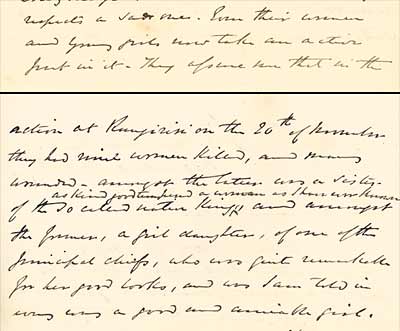 respects a sad one. Even their women
and young girls now take an active
part in it. They assure me that in the
action at Rangiriri on the 20th of November
they had nine women killed, and many
wounded - amongst the latter was a sister
as kind good tempered a woman as I have ever known
of the so called native King, and amongst
the former, a girl daughter, of one of the
principal chiefs, who was quite remarkable
for her good looks, and was I am told in
every way a good and amiable girl.